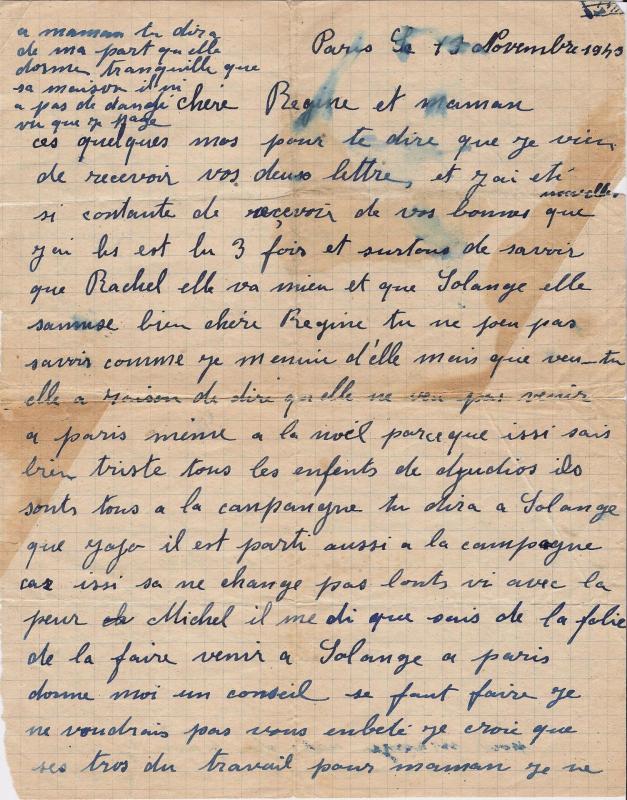 a maman tu dira
de ma part qu elle
dorme tranquille que
sa maison il ni
a pas de dangé
vu que je paye
Paris Le 13 Novembre 1943
chère Regine et maman
ces quelques mos pour te dire que je vien
de recevoir vos deux lettre, et j'ai eté
si contante de recevoir de vos bonnes nouvelles que
j'ai les est lu 3 fois et surtous de savoir
que Rachel elle va mieu et que Solange elle
samuse bien chère Regine tu ne peu pas
savoir comme je menniu d'elle mais que veu-tu
elle a raison de dire qu elle ne veu pas venir
a paris même a la noël parceque issi sais
bien triste tous les enfents de djudios ils
sonts tous a la canpangne tu dira a Solange
que jojo il est parti aussi a la campagne
car issi sa ne change pas lonts vi avec la
peur Michel il me di que sais de la folie
de la faire venir a Solange a paris
donne moi un conseil se faut faire je
ne voudrais pas vous enbeté je croie que
ses tros du travail pour maman je ne